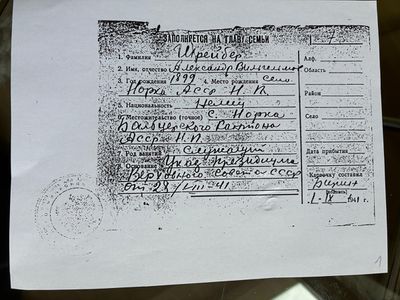 ЗАПОЛНЯЕТСЯ НА ГЛАВУ СЕМЬИ
1. Фамилия Шрейбер
2. Имя, отчество Александр
3. Год рождения 1899 4. Место рождения село
Норка АССР Н.П.
5. Национальность Немец
6. Местожительство (точное) с. Норка
Бальцерского Кантона
АССР Н.П.
Род занятий Служащий
Основание Указ президиума
Верховного Совета СССР
от 28/VIII 41
Алф.
Область
Район
Село
Дата прибытия
Карточку составил
(подпись)
1-IX 1941 г.
1